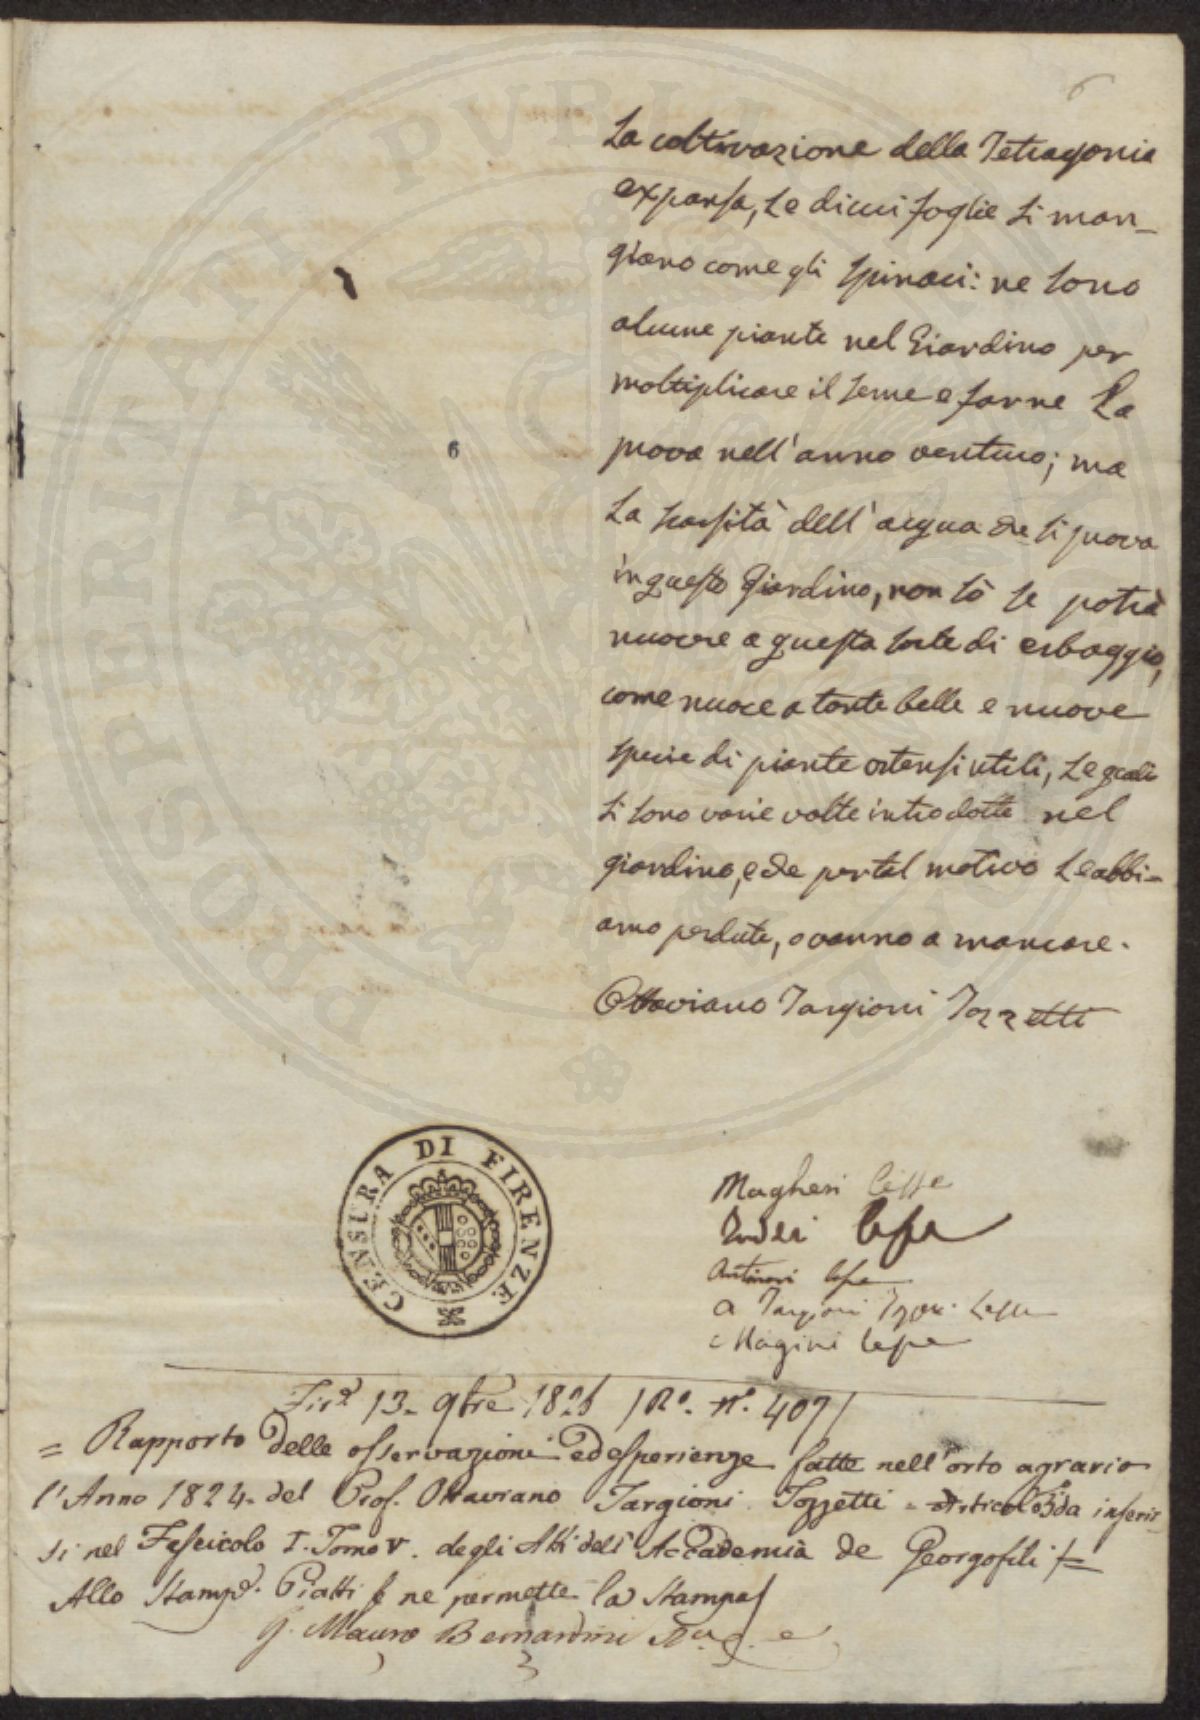 6
La coltivazione della Tetragonia
expansa, le di cui foglie si man-
giano come gli spinaci: ne sono
alcune piante nel Giardino per
moltiplicare il seme e farne La
prova nell'anno venturo; ma
La scarsità dell'acqua che si prova
in questo Giardino, non sò se potrà
nuocere a questa sorte di erbaggio,
come nuoce a tante belle e nuove
specie di piante ortensi utili, Le quali
si sono varie volte introdotte nel
giardino, e che per tal motivo Le abbi-
amo perdute, o vanno a mancare.
Ottaviano Targioni Tozzetti
6
CENSURA DI FIRENZE
Magheri lesse
lesse
Antinori lesse
A Targioni Tozz. Lesse
Magini lesse
Fir. 13. 9bre 182 R. n. 407
= Rapporto delle osservazioni ed esperienze fatte nell'orto agrario
l'Anno 1824. del Prof. Ottaviano Targioni Tozzetti = Articolo 3 da inserir-
si nel Fascicolo I. Tomo V. degli Atti dell'Accademia de Georgofili =
Allo Stamp. Piatti se ne permette la Stampa
Mauro Bernardini
PROSPERITATI PVBLICAE AVGENDAE